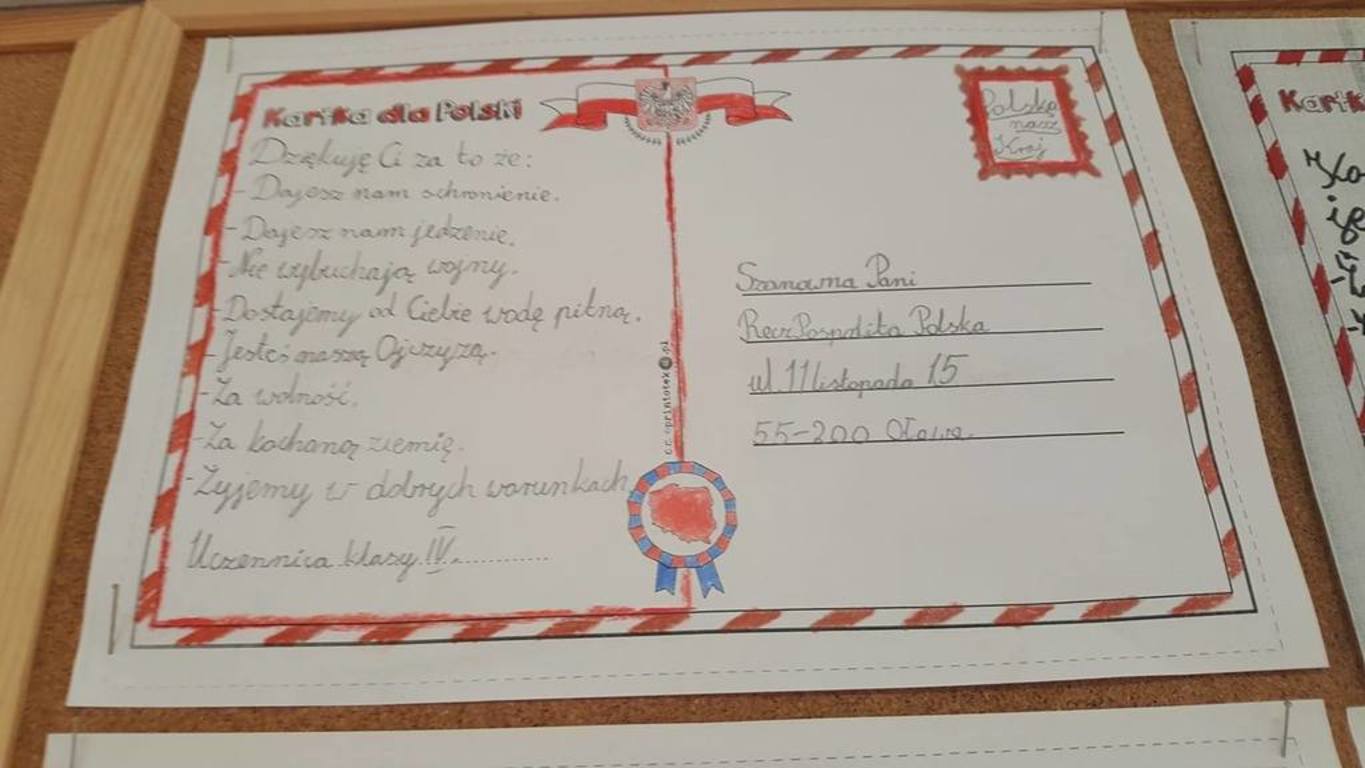 Kartka dla Polski
Dziękuję Ci za to że:
- Dajesz nam schronienie.
- Dajesz nam jedzenie.
- Nie wybuchają wojny.
- Dostajemy od Ciebie wodę pitną.
- Jesteś naszą Ojczyzą.
- Za wolność.
- Za kochaną ziemię.
- Żyjemy w dobrych warunkach.
Uczennica klasy IV
Polska
nasz
Kraj
Szanowna Pani
RzeczPospolita Polska
ul. 11 listopada 15
55-200 Oława.
printoteka.pl
Kart